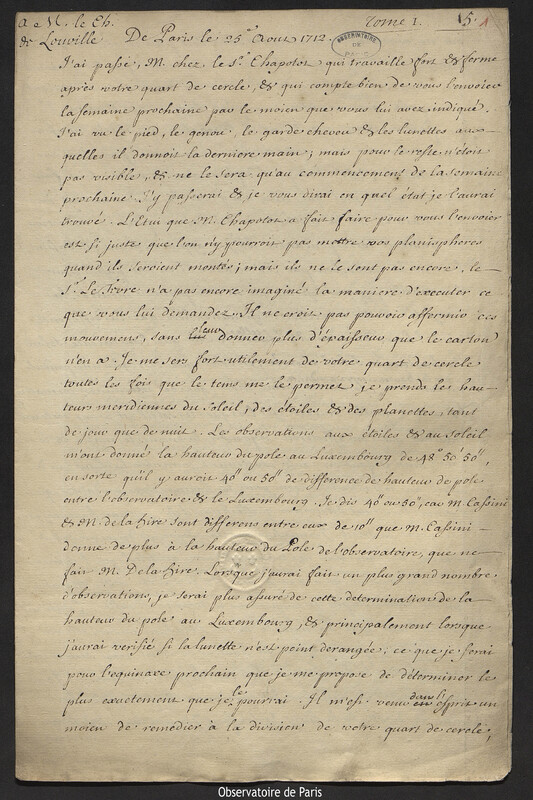 a M. le Ch.
de Louville. De Paris le 25e Aout 1712. Tome 1. 15. 1
OBSERVATOIRE DE PARIS
J'ai passé, M. chez le Sr. Chapotot qui travaille fort & ferme
après votre quart de cercle, & qui compte bien de vous l'envoier
la semaine prochaine par le moien que vous lui avez indiqué.
J'ai vu le pied, le genou, le garde cheveu & les lunettes aux-
quelles il donnoit la derniere main; mais pour le reste n'étoit
pas visible, & ne le sera qu'au commencement de la semaine
prochaine. J'y passerai & je vous dirai en quel état je l'aurai
trouvé. L'Etui que M. Chapotot a fait faire pour vous l'envoier
est si juste que l'on n'y pourroit pas mettre vos planispheres
quand ils seroient montés; mais ils ne le sont pas encore, le
Sr. Le Fevre n'a pas encore imaginé la maniere d'executer ce
que vous lui demandez. Il ne croit pas pouvoir affermir ces
mouvemens, sans leur donner plus d'épaisseur que le carton
n'en a. Je me sers fort utilement de votre quart de cercle
toutes les fois que le tems me le permet, je prends les hau-
teurs meridiennes du Soleil, des étoiles & des planettes, tant
de jour que de nuit. Les observations aux étoiles & au soleil
m'ont donné la hauteur du pole au Luxembourg de 48° 50' 50",
en sorte qu'il y auroit 40" ou 50" de difference de hauteur de pole
entre l'observatoire & le Luxembourg. Je dis 40" ou 50", car M. Cassini
& M. de la Hire sont differens entre eux de 10" que M. Cassini
donne de plus à la hauteur du Pole de l'observatoire, que ne
fait M. De la Hire. Lorsque j'aurai fait un plus grand nombre
d'observations, je serai plus assuré de cette determination de la
hauteur du pole au Luxembourg, & principalement lorsque
j'aurai verifié si la lunette n'est point derangée; ce que je ferai
pour l'equinoxe prochain que je me propose de déterminer le
plus exactement que je le pourrai. Il m'est venu dans l'esprit un
moien de remedier à la division de votre quart de cercle;
Observatoire de Paris